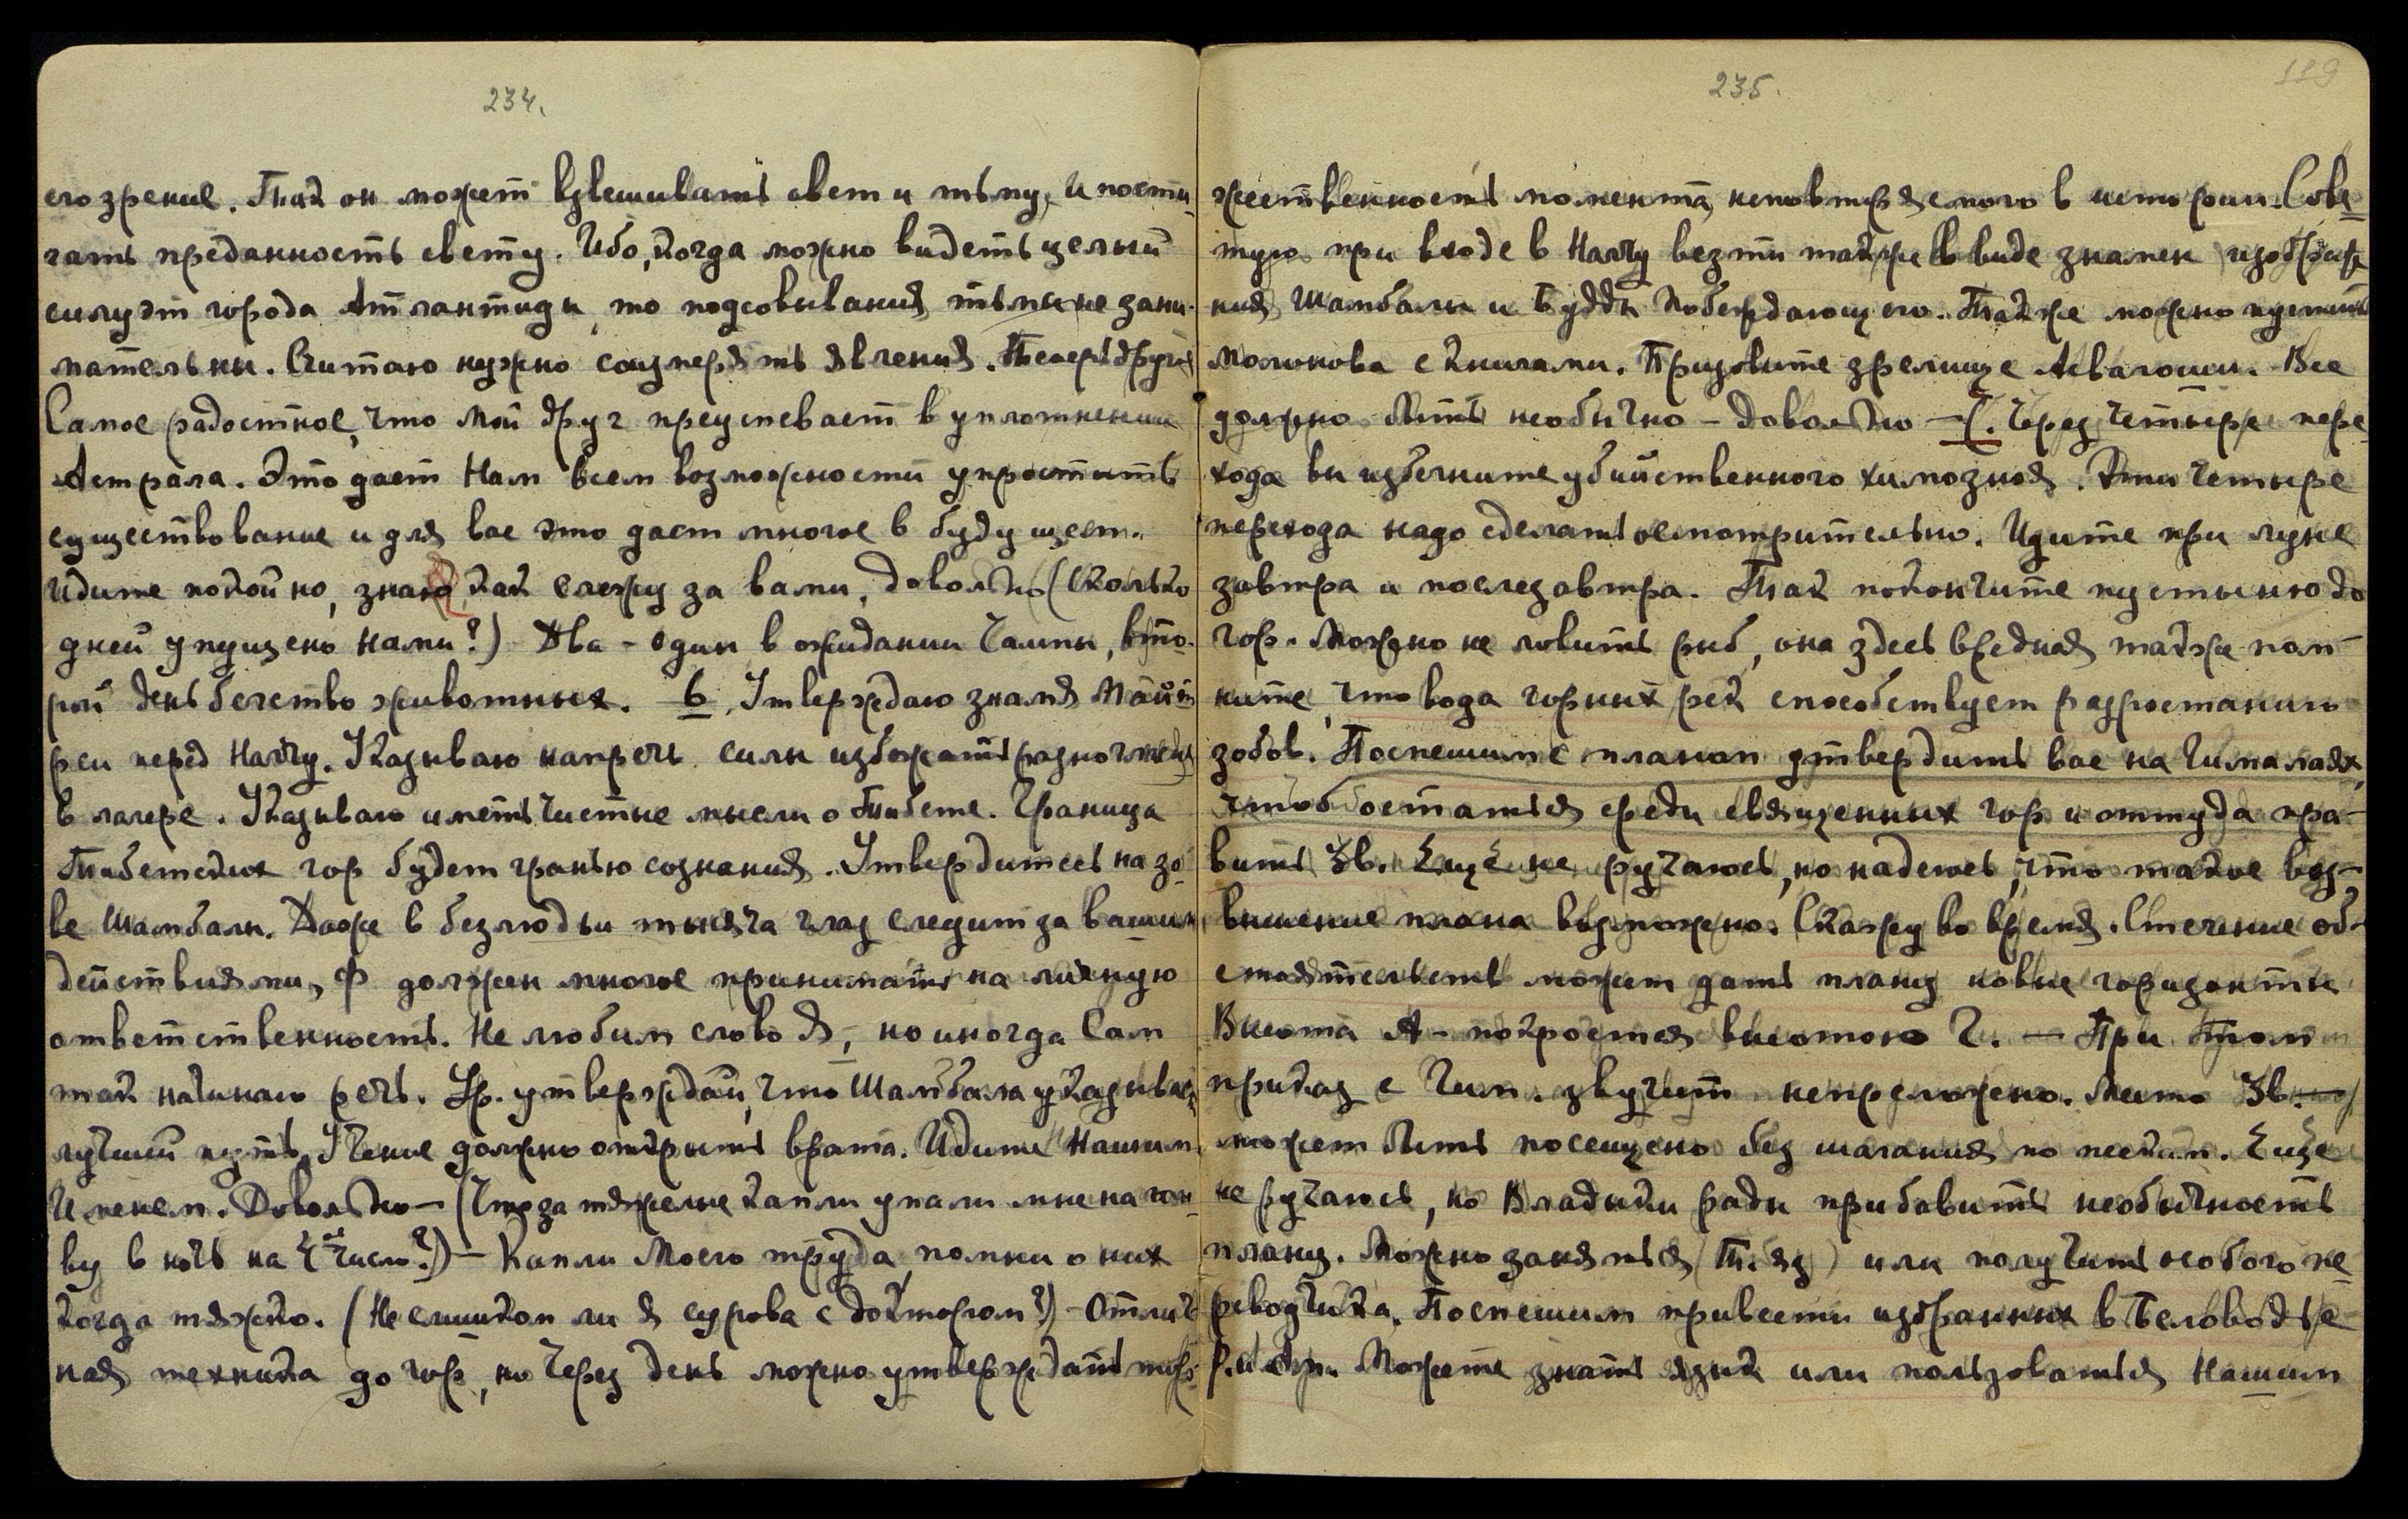 234.
его зрение. Так он может взвешивать свет и тьму, и пости-
гать преданность свету. Ибо, когда можно видеть целый
силуэт города Атлантиды, то подсовывания тьмы не зани-
мательны. Считаю нужно соизмерять явления. Теперь другое
Самое радостное, что мой друг преуспевает в уплотнении
Астрала. Это дает Нам всем возможности упростить
существование и для вас это даст многое в будущем.
Идите покойно, зная, как слежу за вами, довольно (Сколько
дней упущено нами?) Два – один в ожидании Чампы, вто-
рой день бегство животных. 6. Утверждаю знамя Майт
реи перед Нагчу. Указываю напречь силы избежать разногласия
в лагере. Указываю иметь чистые мысли о Тибете. Граница
Тибетских гор будет гранью сознания. Утвердитесь на зо-
ве Шамбалы. Даже в безлюдьи тысяча глаз следит за вашими
действиями, Ф должен многое принимать на личную
ответственность. Не любим слово Я, но иногда Сам
так начинаю речь. Ур. утверждай, что Шамбала указывает
лучший путь, Учение должно открыть врата. Идите Нашим
Именем. Довольно – (Что за тяжелые капли упали мне на голо-
ву в ночь на число?) – Капли Моего труда, помни о них
когда тяжко. (Не слишком ли я сурова с доктором?) – Отлич
ная техника до гор, но через день можно утверждать тор-
235.
119
жественность момента, неповторяемого в истории. Сове-
тую при входе в Нагчу везти также в виде знамен изображе
ния Шамбалы и Будды Побеждающего. Также можно пустить
Молонова с книгами. Призовите зрелище Асвагоши. Все
должно быть необычно – довольно – 7. Через четыре пере
хода вы избегните убийственного химозноя. Эти четыре
перехода надо сделать осмотрительно. Идите при луне
завтра и послезавтра. Так покончите пустыню до
гор. Можно не ловить рыб, она здесь вредная также пом-
ните, что вода горных рек способствует разростанию
зобов. Поспешите планом утвердить вас на Гималаях,
чтоб остаться среди священных гор и оттуда пра-
вить Зв. Еще не ручаюсь, но надеюсь, что такое воз-
вышение плана возможно. Скажу во время. Стечение об-
стоятельств может дать плану новые горизонты
Высота А – покроется высотою Г. — При том
приказ с Гим. звучит непреложно. Место Зв.
может быть посещено без шагания по пескам. Еще
не ручаюсь, но Владыки рады прибавить необычность
плану. Можно заняться (Т. яз) или получить особого пе-
реводчика. Поспешим привести избранных в Беловодье
Р. и др. Можете знать язык или пользоваться Нашим